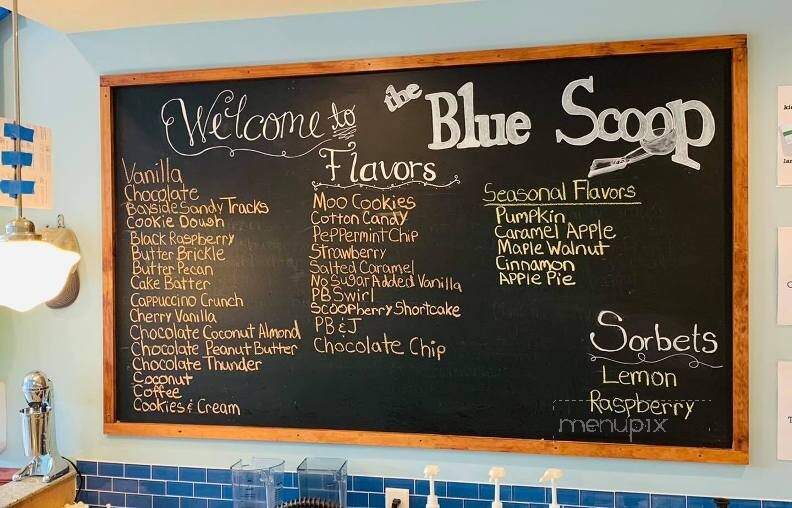 Welcome to the Blue Scoop
Flavors
Vanilla
Chocolate
Bayside Sandy Tracks
Cookie Dough
Black Raspberry
Butter Brickle
Butter Pecan
Cake Batter
Cappuccino Crunch
Cherry Vanilla
Chocolate Coconut Almond
Chocolate Peanut Butter
Chocolate Thunder
Coconut
Coffee
Cookies & Cream
Moo Cookies
Cotton Candy
Peppermint Chip
Strawberry
Salted Caramel
No Sugar Added Vanilla
PB Swirl
Scoopberry Shortcake
PB & J
Chocolate Chip
Seasonal Flavors
Pumpkin
Caramel Apple
Maple Walnut
Cinnamon
Apple Pie
Sorbets
Lemon
Raspberry
menupix